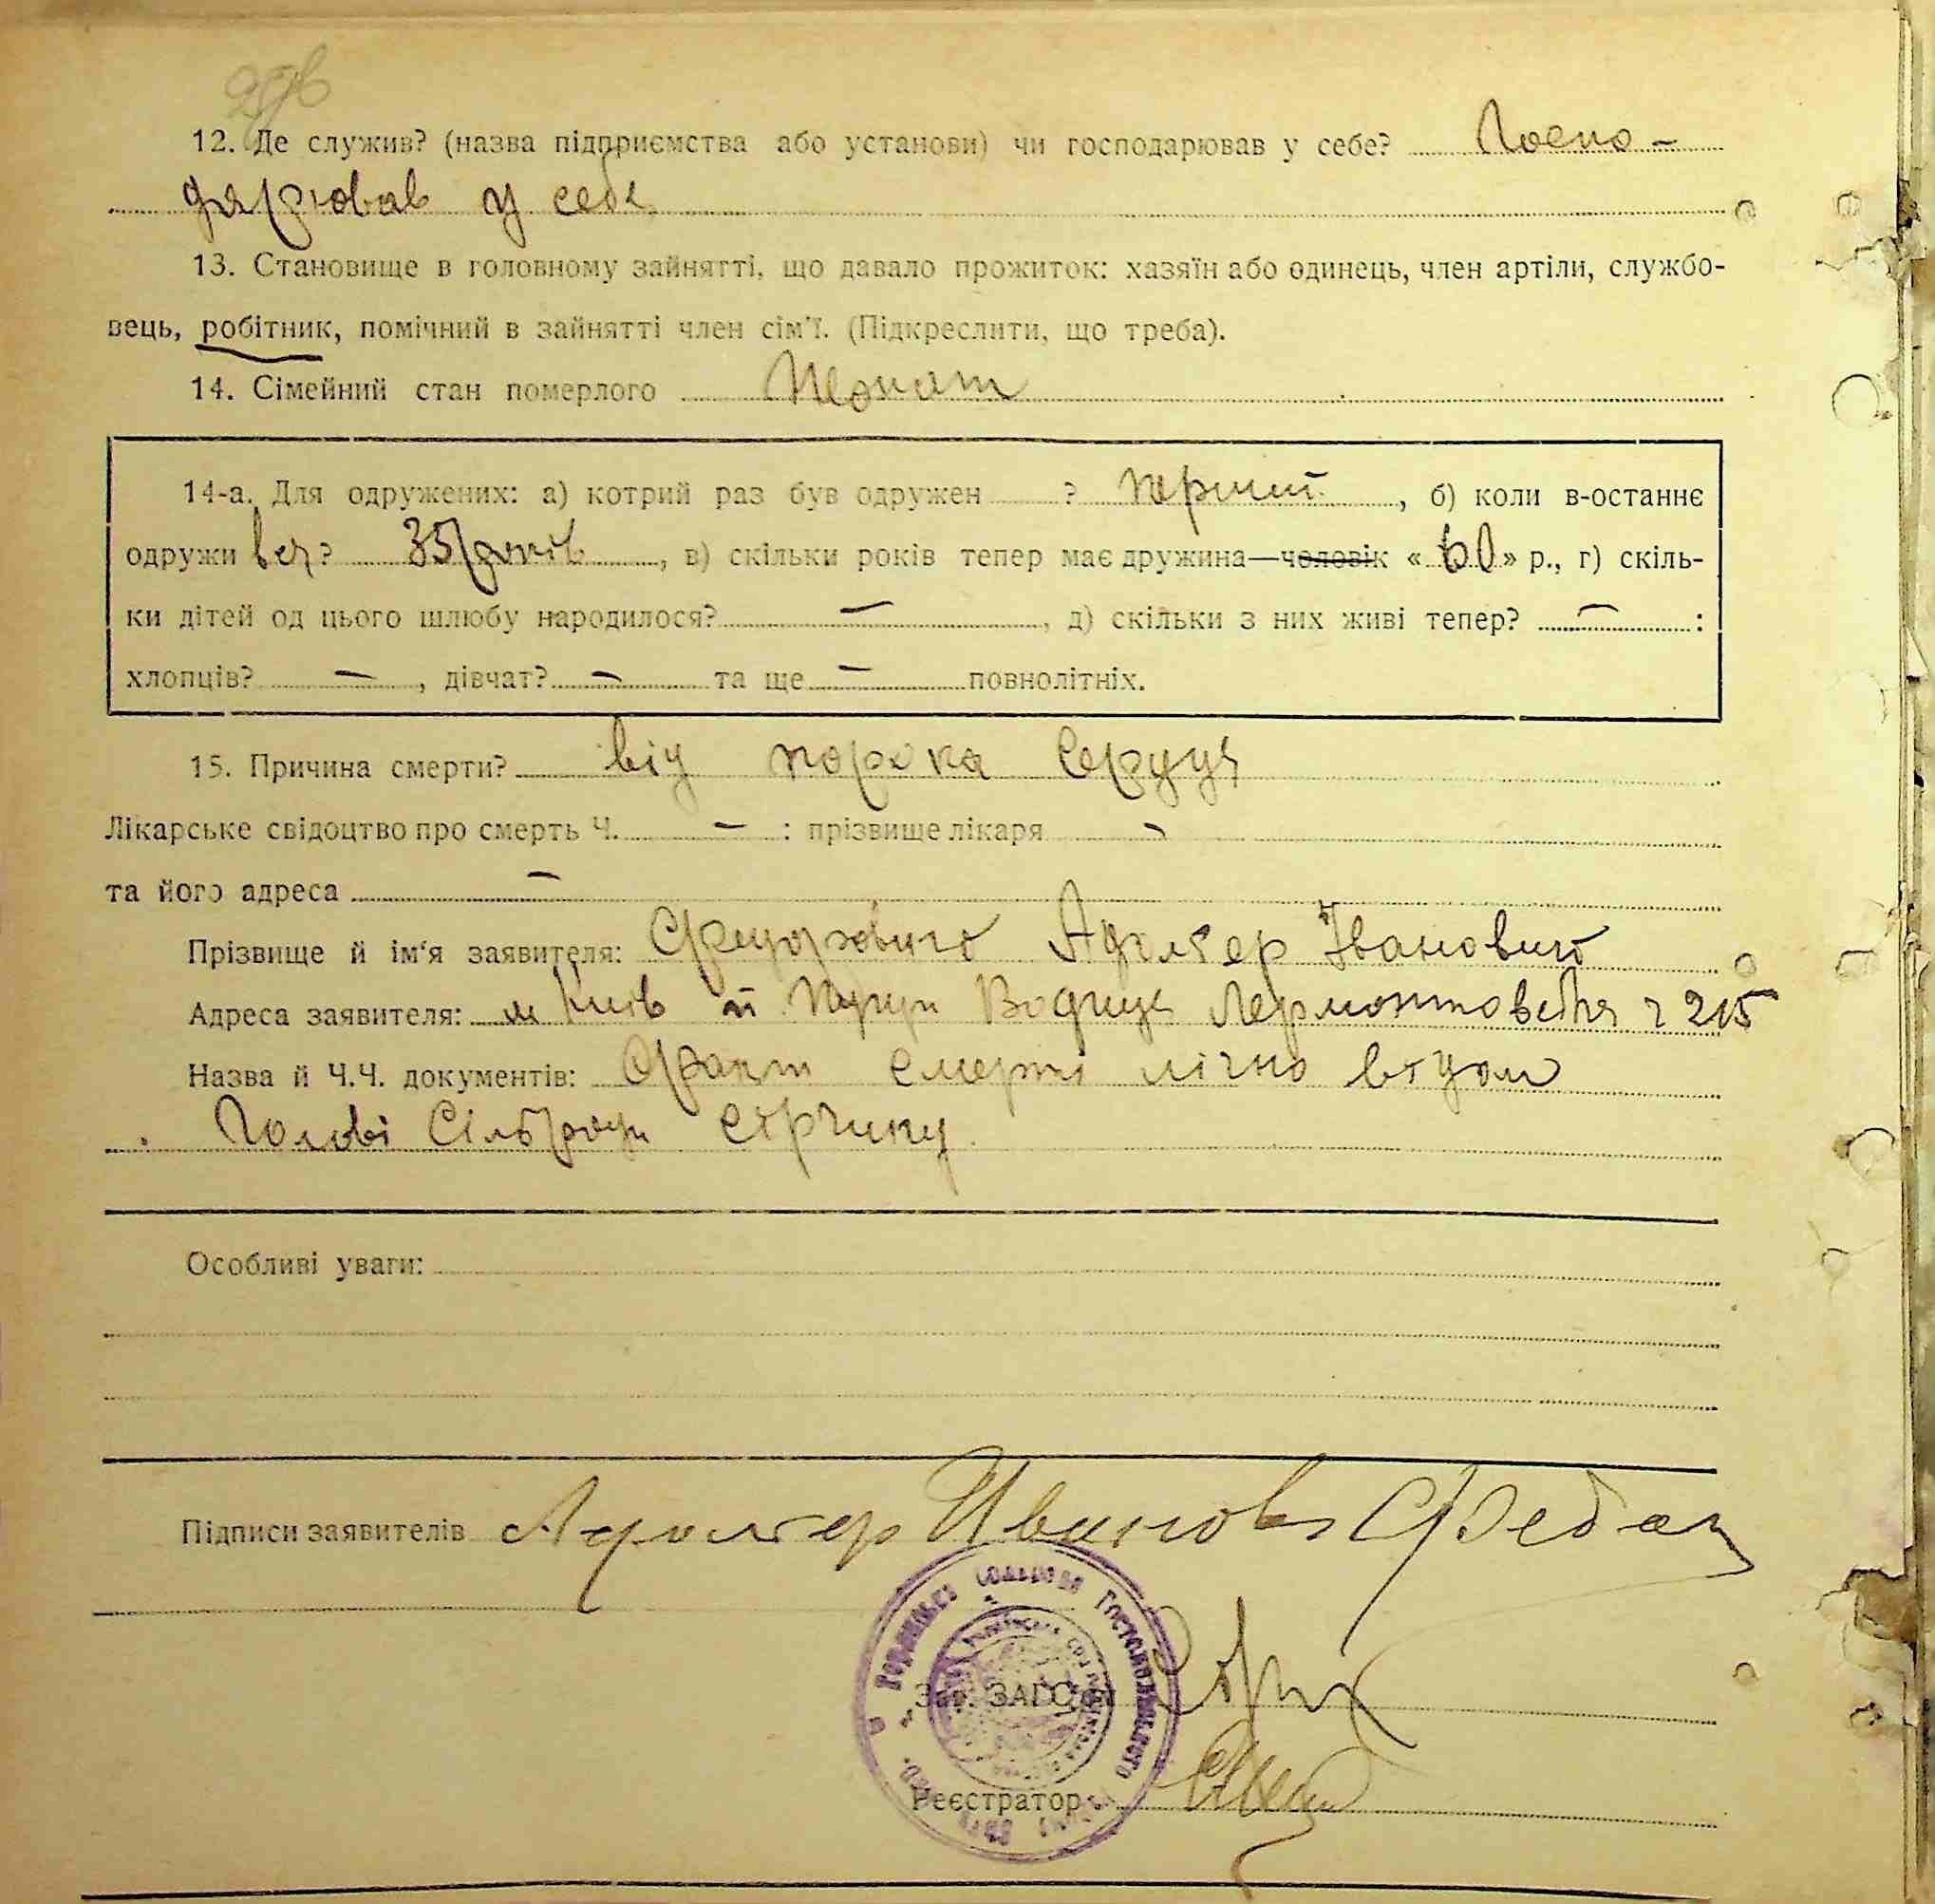 12. Де служив? (назва підприємства або установи) чи господарював у себе? Госпо-
дарював у себе
13. Становище в головному зайнятті, що давало прожиток: хазяїн або одинець, член артіли, службо-
вець, робітник, помічний в зайнятті член сім'ї. (Підкреслити, що треба).
14. Сімейний стан померлого Жонат
14-а. Для одружених: а) котрий раз був одружен ? перший, б) коли в-останнє
одружився? 35 років, в) скільки років тепер має дружина—чоловік « 60 » р., г) скіль-
ки дітей од цього шлюбу народилося? —, д) скільки з них живі тепер? — :
хлопців? —, дівчат? — та ще — повнолітніх.
15. Причина смерти? від порока серця
Лікарське свідоцтво про смерть Ч. — : прізвище лікаря —
та його адреса —
Прізвище й ім'я заявителя: Адольф Іванович
Адреса заявителя: м Київ Пуща Водиця Лермонтовська 215
Назва й Ч.Ч. документів: Факт смерті лічно відом
Голові Сільради
Особливі уваги:
Підписи заявителів
Зав. ЗАГС'ом
Реєстратор